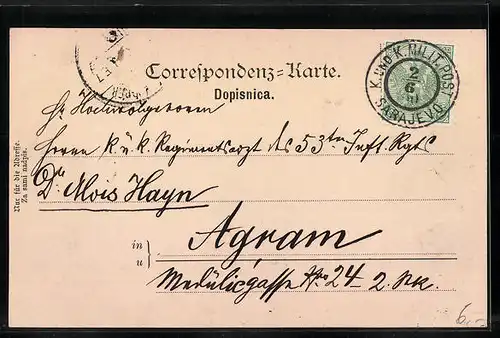 Correspondenz-Karte.
Dopisnica.
K. UND K. MILIT. POST
2
6
SARAJEVO
Nur für die Adresse.
Za sami nadpis.
Sr Hochwolgeboren
Herrn K. u. k. Regimentsarzt des 53ten Inft. Rgts
Dr. Alois Hayn
in
u
Agram
Medulicgasse No. 24 - 2. Stk.
6.-